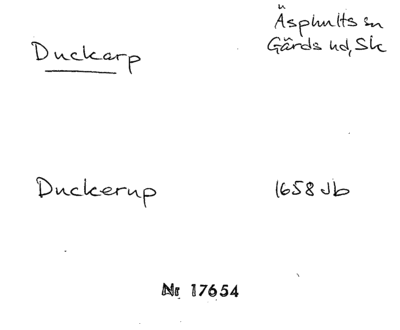 Duckarp
Äsphults sn
Gärds hd, Sk
Duckerup
1658 Jb
Nr 17654